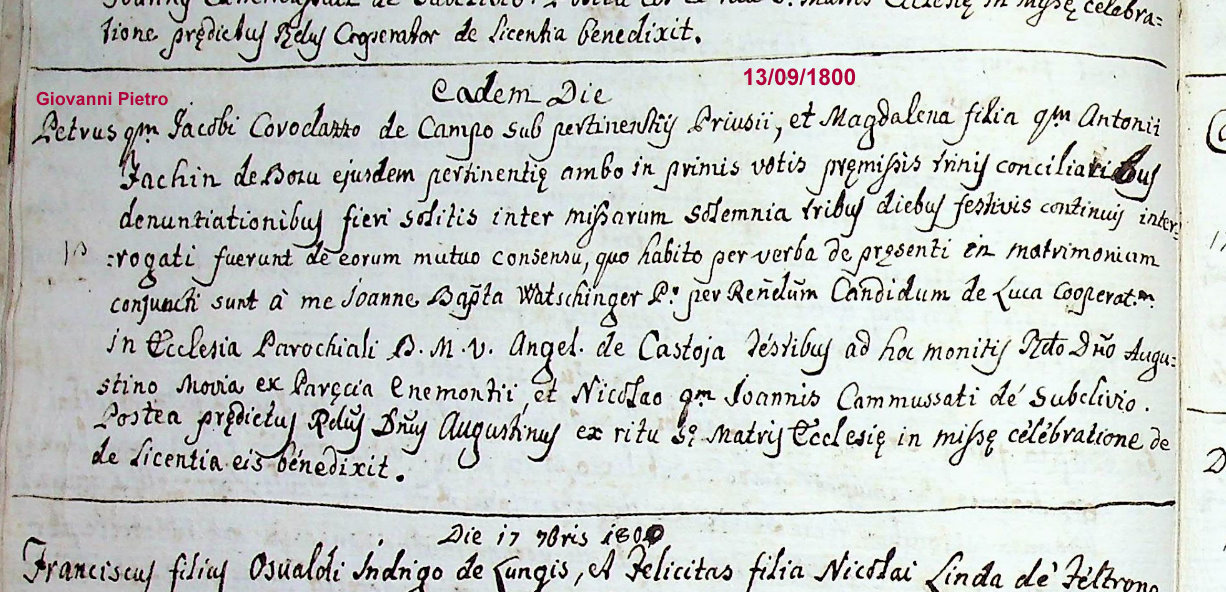 de Subclivio. Postea in missę celebra=
tione prędictus Rd̄us Cooperator de licentia benedixit.
Eadem Die
13/09/1800
Giovanni Pietro
Petrus qm̄ Jacobi Corodazzo de Campo sub pertinentijs Priusii, et Magdalena filia qm̄ Antonii
Jachin de Boru ejusdem pertinentię ambo in primis votis pręmissis trinis conciliaribus
denuntiationibus fieri solitis inter missarum solemnia tribus diebus festivis continuis inter=
=rogati fuerunt de eorum mutuo consensu, quo habito per verba de pręsenti in matrimonium
conjuncti sunt à me Joanne Bap̄ta Watschinger P.º per Ren̄dum Candidum de Luca Cooperat.m
in Ecclesia Parochiali B. M. V. Angel. de Castoja testibus ad hoc monitis Rdo Dn̄o Augu=
stino Movia ex Paręcia Enemontii, et Nicolao qm̄ Joannis Cammussati dé Subclivio.
Postea prędictus Rd̄us Dn̄us Augustinus ex ritu Sę Matris Ecclesię in missę célébratione de
de licentia eis bénedixit.
Die 17 7bris 1800
Franciscus filius Osualdi Indrigo de Lungis, et Felicitas filia Nicolai Linda dé Téltrono